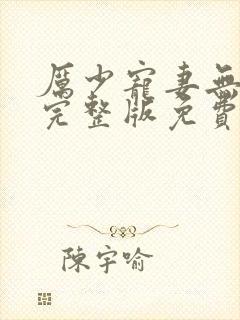 厲少寵妻無
完整版免費
陳宇喻